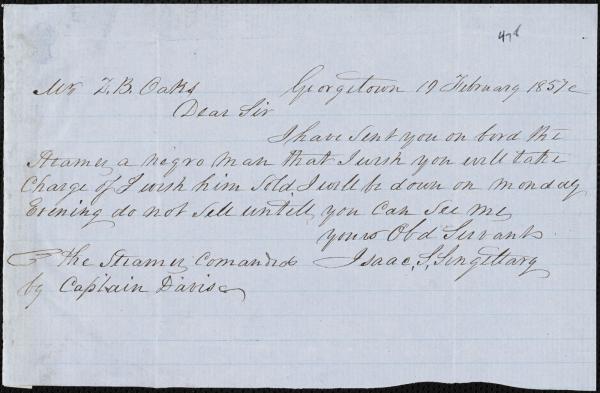 478
Mr Z. B. Oaks Georgetown 19 February 1857
Dear Sir
I have sent you on bord the
Steamer a negro man that I wish you will take
Charge of I wish him sold, I will be down on monday
Evening do not sell untill you can see me
yours Obd Servant
The Steamer Comanded Isaac, S, Singeltary
by Captain Davis